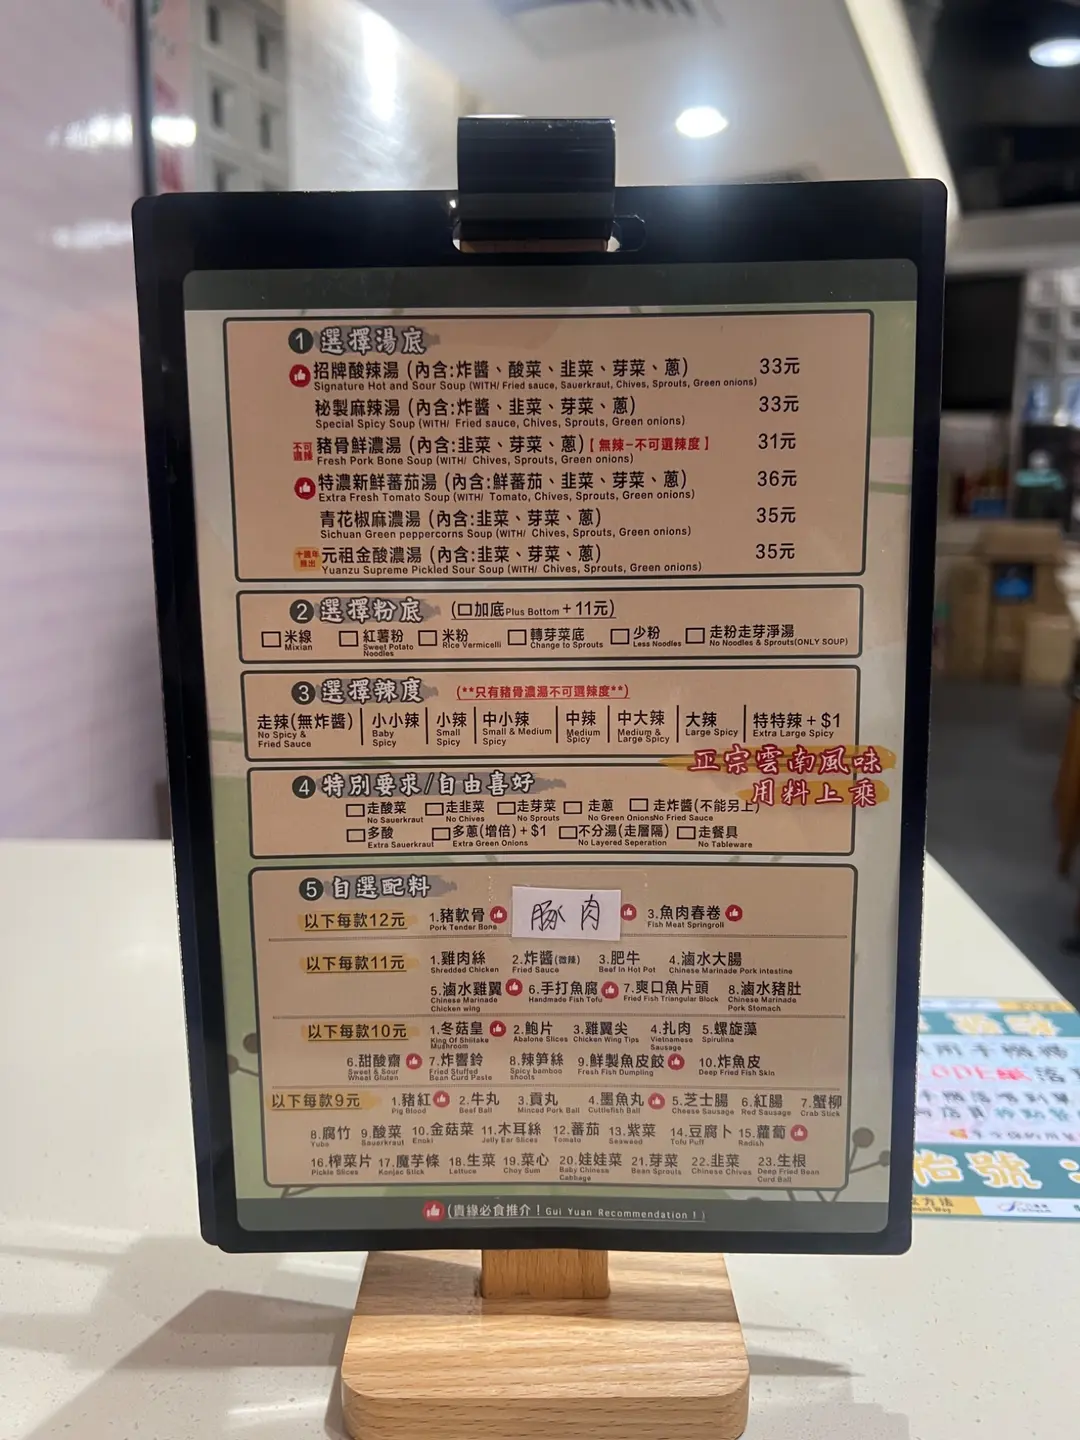 1 選擇湯底
招牌酸辣湯 (內含:炸醬、酸菜、韭菜、芽菜、蔥) 33元
Signature Hot and Sour Soup (WITH/ Fried sauce, Sauerkraut, Chives, Sprouts, Green onions)
秘製麻辣湯 (內含:炸醬、韭菜、芽菜、蔥) 33元
Special Spicy Soup (WITH/ Fried sauce, Chives, Sprouts, Green onions)
不可選辣 豬骨鮮濃湯 (內含:韭菜、芽菜、蔥)【無辣-不可選辣度】 31元
Fresh Pork Bone Soup (WITH/ Chives, Sprouts, Green onions)
特濃新鮮蕃茄湯 (內含:鮮蕃茄、韭菜、芽菜、蔥) 36元
Extra Fresh Tomato Soup (WITH/ Tomato, Chives, Sprouts, Green onions)
青花椒麻濃湯 (內含:韭菜、芽菜、蔥) 35元
Sichuan Green peppercorns Soup (WITH/ Chives, Sprouts, Green onions)
十週年推出 元祖金酸濃湯 (內含:韭菜、芽菜、蔥) 35元
Yuanzu Supreme Pickled Sour Soup (WITH/ Chives, Sprouts, Green onions)
2 選擇粉底 (□加底Plus Bottom + 11元)
□米線 □紅薯粉 □米粉 □轉芽菜底 □少粉 □走粉走芽淨湯
Mixian Sweet Potato Noodles Rice Vermicelli Change to Sprouts Less Noodles No Noodles & Sprouts(ONLY SOUP)
3 選擇辣度 (**只有豬骨濃湯不可選辣度**)
走辣(無炸醬) 小小辣 小辣 中小辣 中辣 中大辣 大辣 特特辣 + $1
No Spicy & Fried Sauce Baby Spicy Small Spicy Small & Medium Spicy Medium Spicy Medium & Large Spicy Large Spicy Extra Large Spicy
正宗雲南風味
用料上乘
4 特別要求/自由喜好
□走酸菜 □走韭菜 □走芽菜 □走蔥 □走炸醬(不能另上)
No Sauerkraut No Chives No Sprouts No Green Onions No Fried Sauce
□多酸 □多蔥(增倍) + $1 □不分湯(走層隔) □走餐具
Extra Sauerkraut Extra Green Onions No Layered Seperation No Tableware
5 自選配料
以下每款12元 1.豬軟骨 豚肉 3.魚肉春卷
Pork Tender Bone Fish Meat Springroll
以下每款11元 1.雞肉絲 2.炸醬(微辣) 3.肥牛 4.滷水大腸
Shredded Chicken Fried Sauce Beef in Hot Pot Chinese Marinade Pork intestine
5.滷水雞翼 6.手打魚腐 7.爽口魚片頭 8.滷水豬肚
Chinese Marinade Chicken wing Handmade Fish Tofu Fried Fish Triangular Block Chinese Marinade Pork Stomach
以下每款10元 1.冬菇皇 2.鮑片 3.雞翼尖 4.扎肉 5.螺旋藻
King Of Shiitake Mushroom Abalone Slices Chicken Wing Tips Vietnamese Sausage Spirulina
6.甜酸齋 7.炸響鈴 8.辣筍絲 9.鮮製魚皮餃 10.炸魚皮
Sweet & Sour Wheat Gluten Fried Stuffed Bean Curd Paste Spicy bamboo shoots Fresh Fish Dumpling Deep Fried Fish Skin
以下每款9元 1.豬紅 2.牛丸 3.貢丸 4.墨魚丸 5.芝士腸 6.紅腸 7.蟹柳
Pig Blood Beef Ball Minced Pork Ball Cuttlefish Ball Cheese Sausage Red Sausage Crab Stick
8.腐竹 9.酸菜 10.金菇菜 11.木耳絲 12.蕃茄 13.紫菜 14.豆腐卜 15.蘿蔔
Yuba Sauerkraut Enoki Jelly Ear Slices Tomato Seaweed Tofu Puff Radish
16.榨菜片 17.魔芋條 18.生菜 19.菜心 20.娃娃菜 21.芽菜 22.韭菜 23.生根
Pickle Slices Konjac Stick Lettuce Choy Sum Baby Chinese Cabbage Bean Sprouts Chinese Chives Deep Fried Bean Curd Ball
(貴緣必食推介！Gui Yuan Recommendation！)